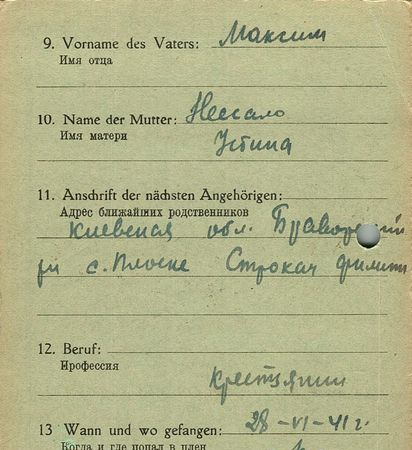 9. Vorname des Vaters: Максим
Имя отца
10. Name der Mutter: Нессало
Имя матери Устина
11. Anschrift der nächsten Angehörigen:
Адрес ближайших родственников
Киевская обл.
с. Плоске Строкач
12. Beruf:
Профессия
Крестянин
13 Wann und wo gefangen: 28-VI-41 г.
Когда и где попал в плен